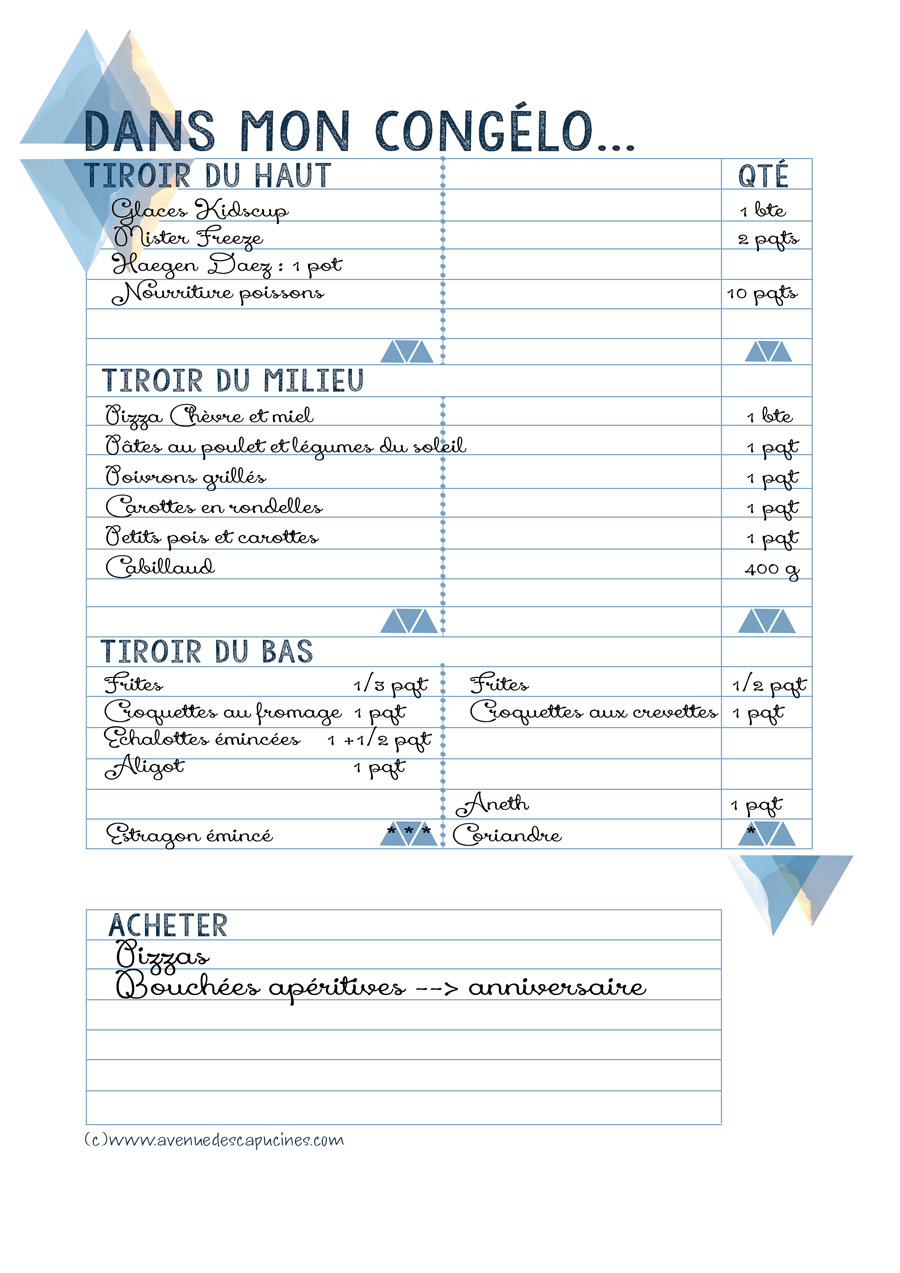 DANS MON CONGÉLO...
TIROIR DU HAUT QTÉ
Glaces Kidscup 1 bte
Mister Freeze 2 pqts
Haegen Daez : 1 pot
Nourriture poissons 10 pqts
TIROIR DU MILIEU
Pizza Chèvre et miel 1 bte
Pâtes au poulet et légumes du soleil 1 pqt
Poivrons grillés 1 pqt
Carottes en rondelles 1 pqt
Petits pois et carottes 1 pqt
Cabillaud 400 g
TIROIR DU BAS
Frites 1/3 pqt Frites 1/2 pqt
Croquettes au fromage 1 pqt Croquettes aux crevettes 1 pqt
Echalottes émincées 1 +1/2 pqt
Aligot 1 pqt
Aneth 1 pqt
Estragon émincé * * * Coriandre *
ACHETER
Pizzas
Bouchées apéritives --> anniversaire
(c)www.avenuedescapucines.com